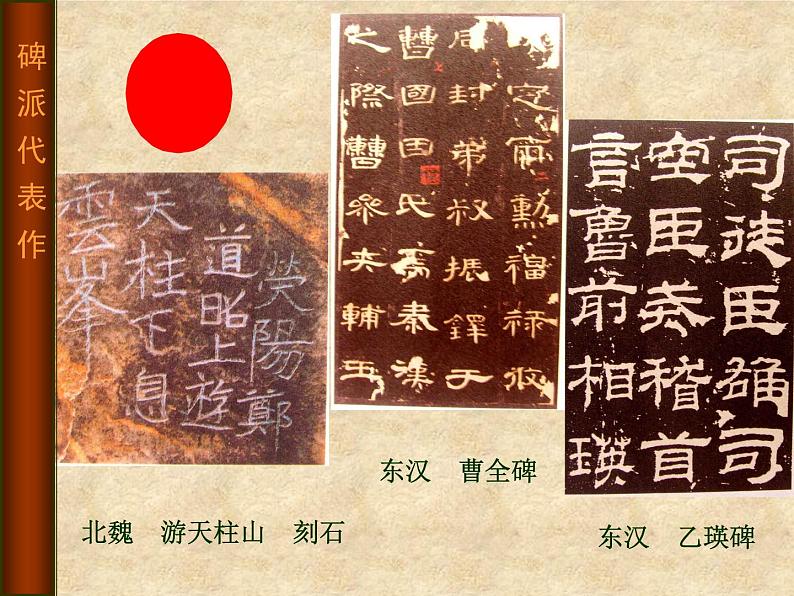 碑派代表作
熒陽鄭
道昭上遊
天柱下息
雲峯
定爾勳福祿攸
同封弟叔振鐸于
曹國因氏焉秦漢
之際曹參夾輔王
司徒臣雄司
空臣戒稽首
言魯前相瑛
北魏 游天柱山 刻石
东汉 曹全碑
东汉 乙瑛碑